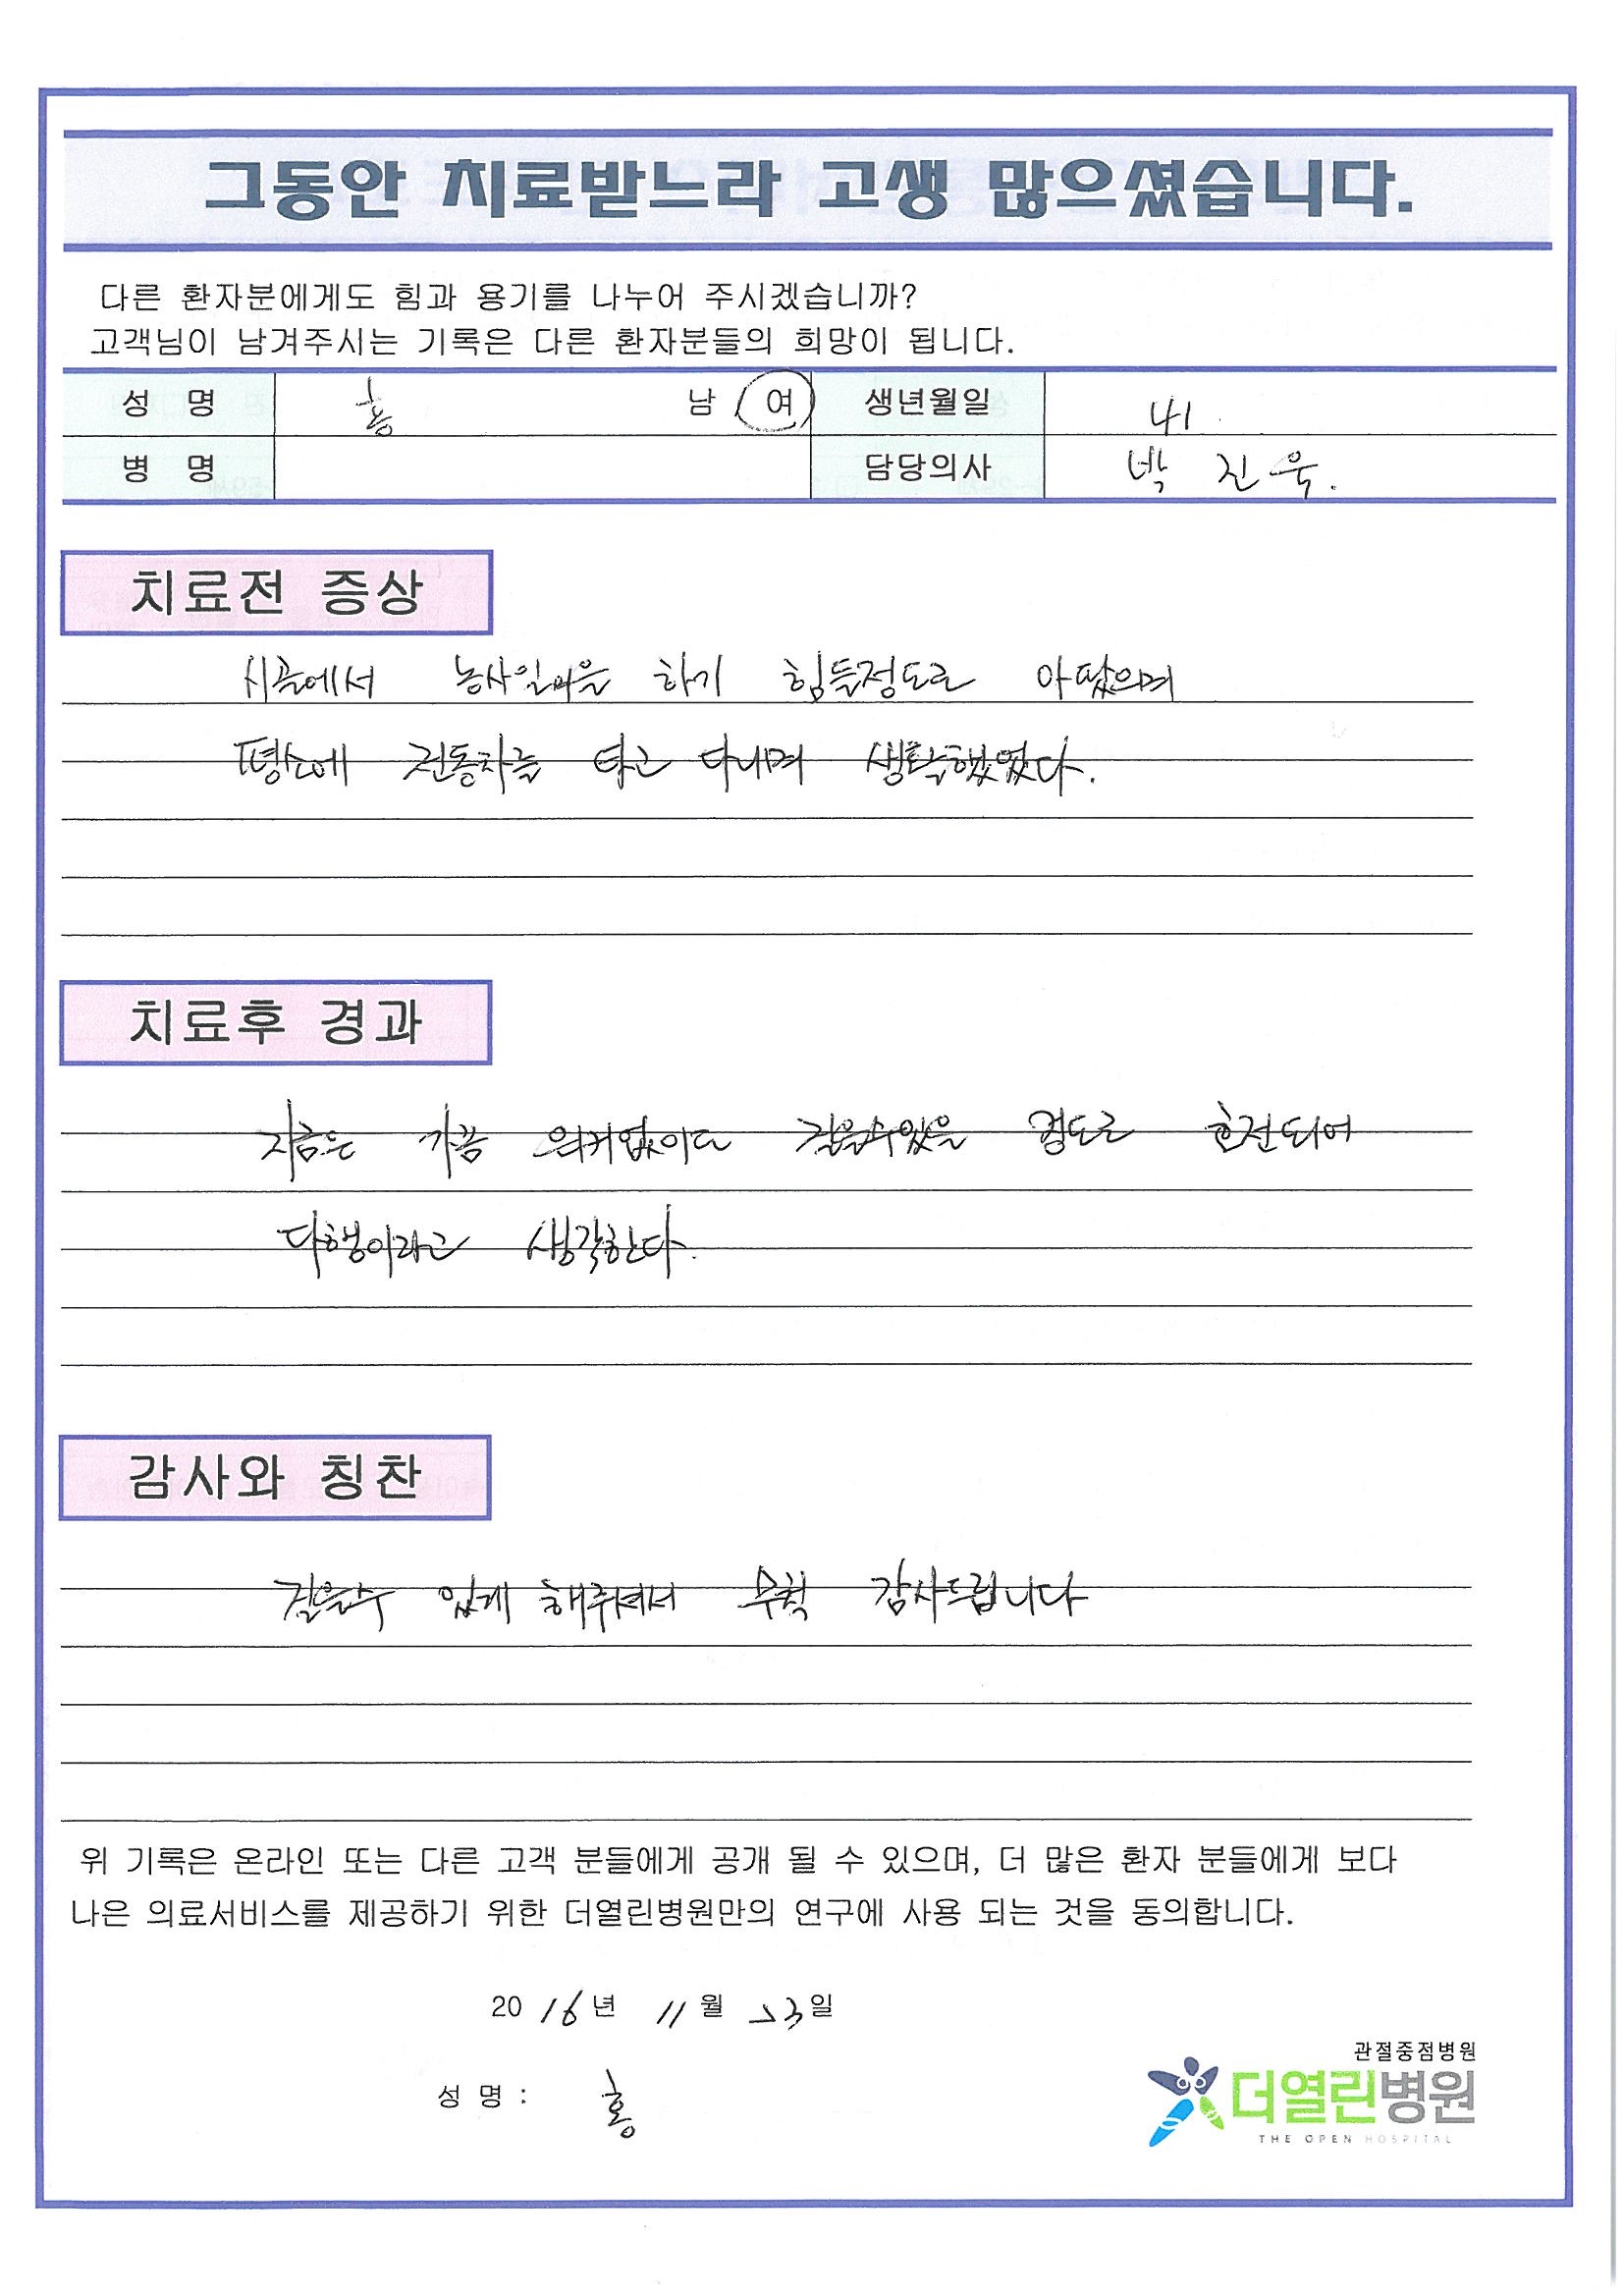 그동안 치료받느라 고생 많으셨습니다.
다른 환자분에게도 힘과 용기를 나누어 주시겠습니까?
고객님이 남겨주시는 기록은 다른 환자분들의 희망이 됩니다.
성 명 홍 남 여 생년월일 41.
병 명 담당의사 박 진 욱.
치료전 증상
시골에서 농사일마을 하기 힘들정도로 아팠으며
평소에 전동차를 타고 다니며 생활했었다.
치료후 경과
지금은 가끔 워커없이도 걸을수있을 정도로 호전되어
다행이라고 생각한다.
감사와 칭찬
걸을수 있게 해주셔서 무척 감사드립니다
위 기록은 온라인 또는 다른 고객 분들에게 공개 될 수 있으며, 더 많은 환자 분들에게 보다
나은 의료서비스를 제공하기 위한 더열린병원만의 연구에 사용 되는 것을 동의합니다.
2016년 11월 23일
성 명 : 홍
관절중점병원
더열린병원
THE OPEN HOSPITAL